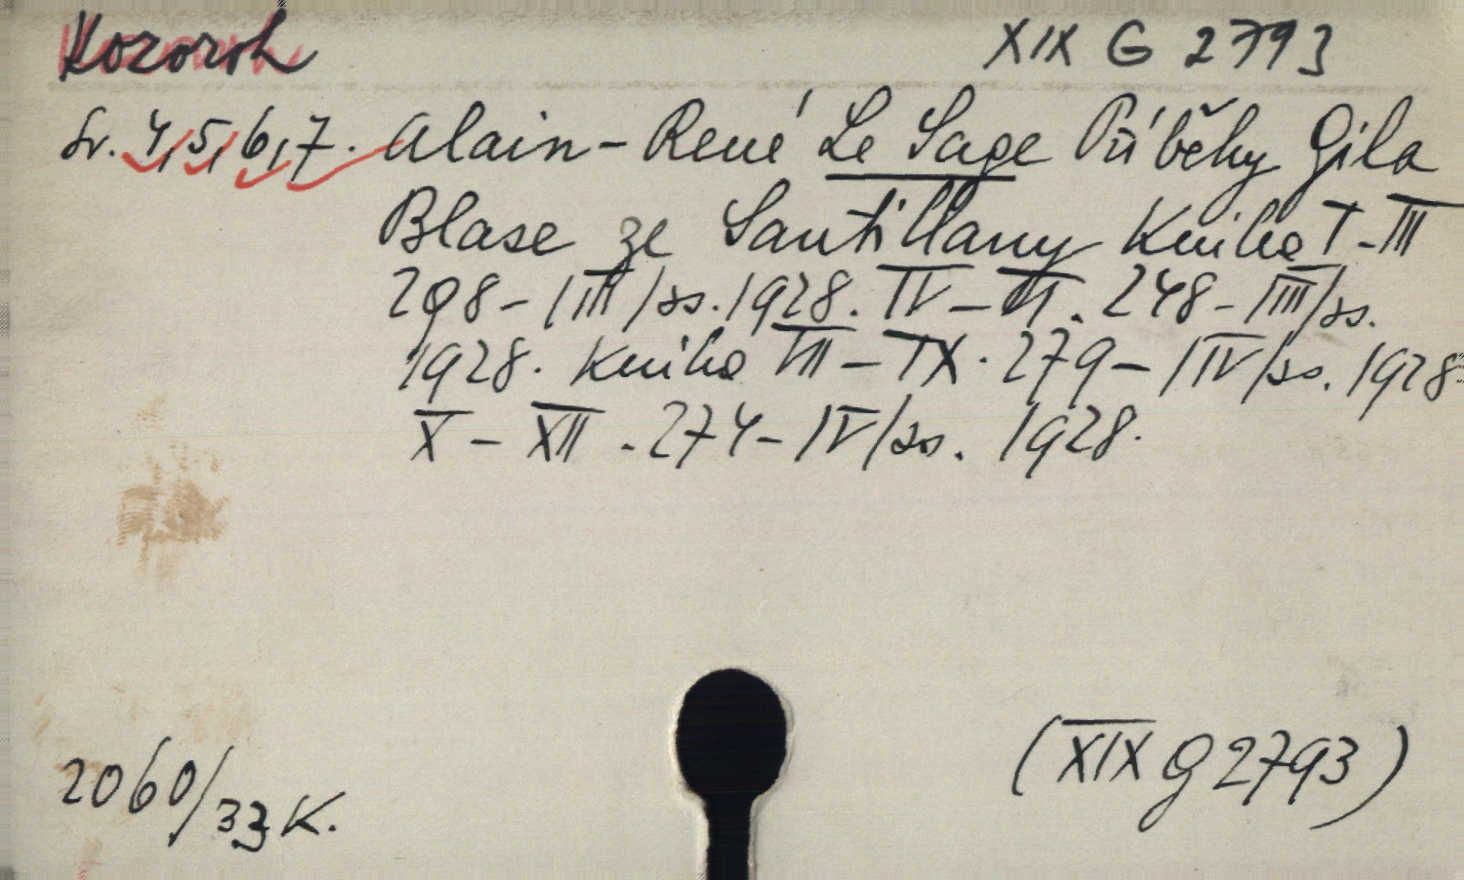 Kozoroh XIX G 2793
Sv. 4,5,6,7. Alain-René Le Sage Příběhy Gila
Blase ze Santillany Kniha I-III
298-|III|ss. 1928. IV-VI. 248-|III|ss.
1928. Kniha VII-IX. 279-|IV|ss. 1928.
X-XII. 274-|V|ss. 1928.
2060/33 K. (XIX G 2793)